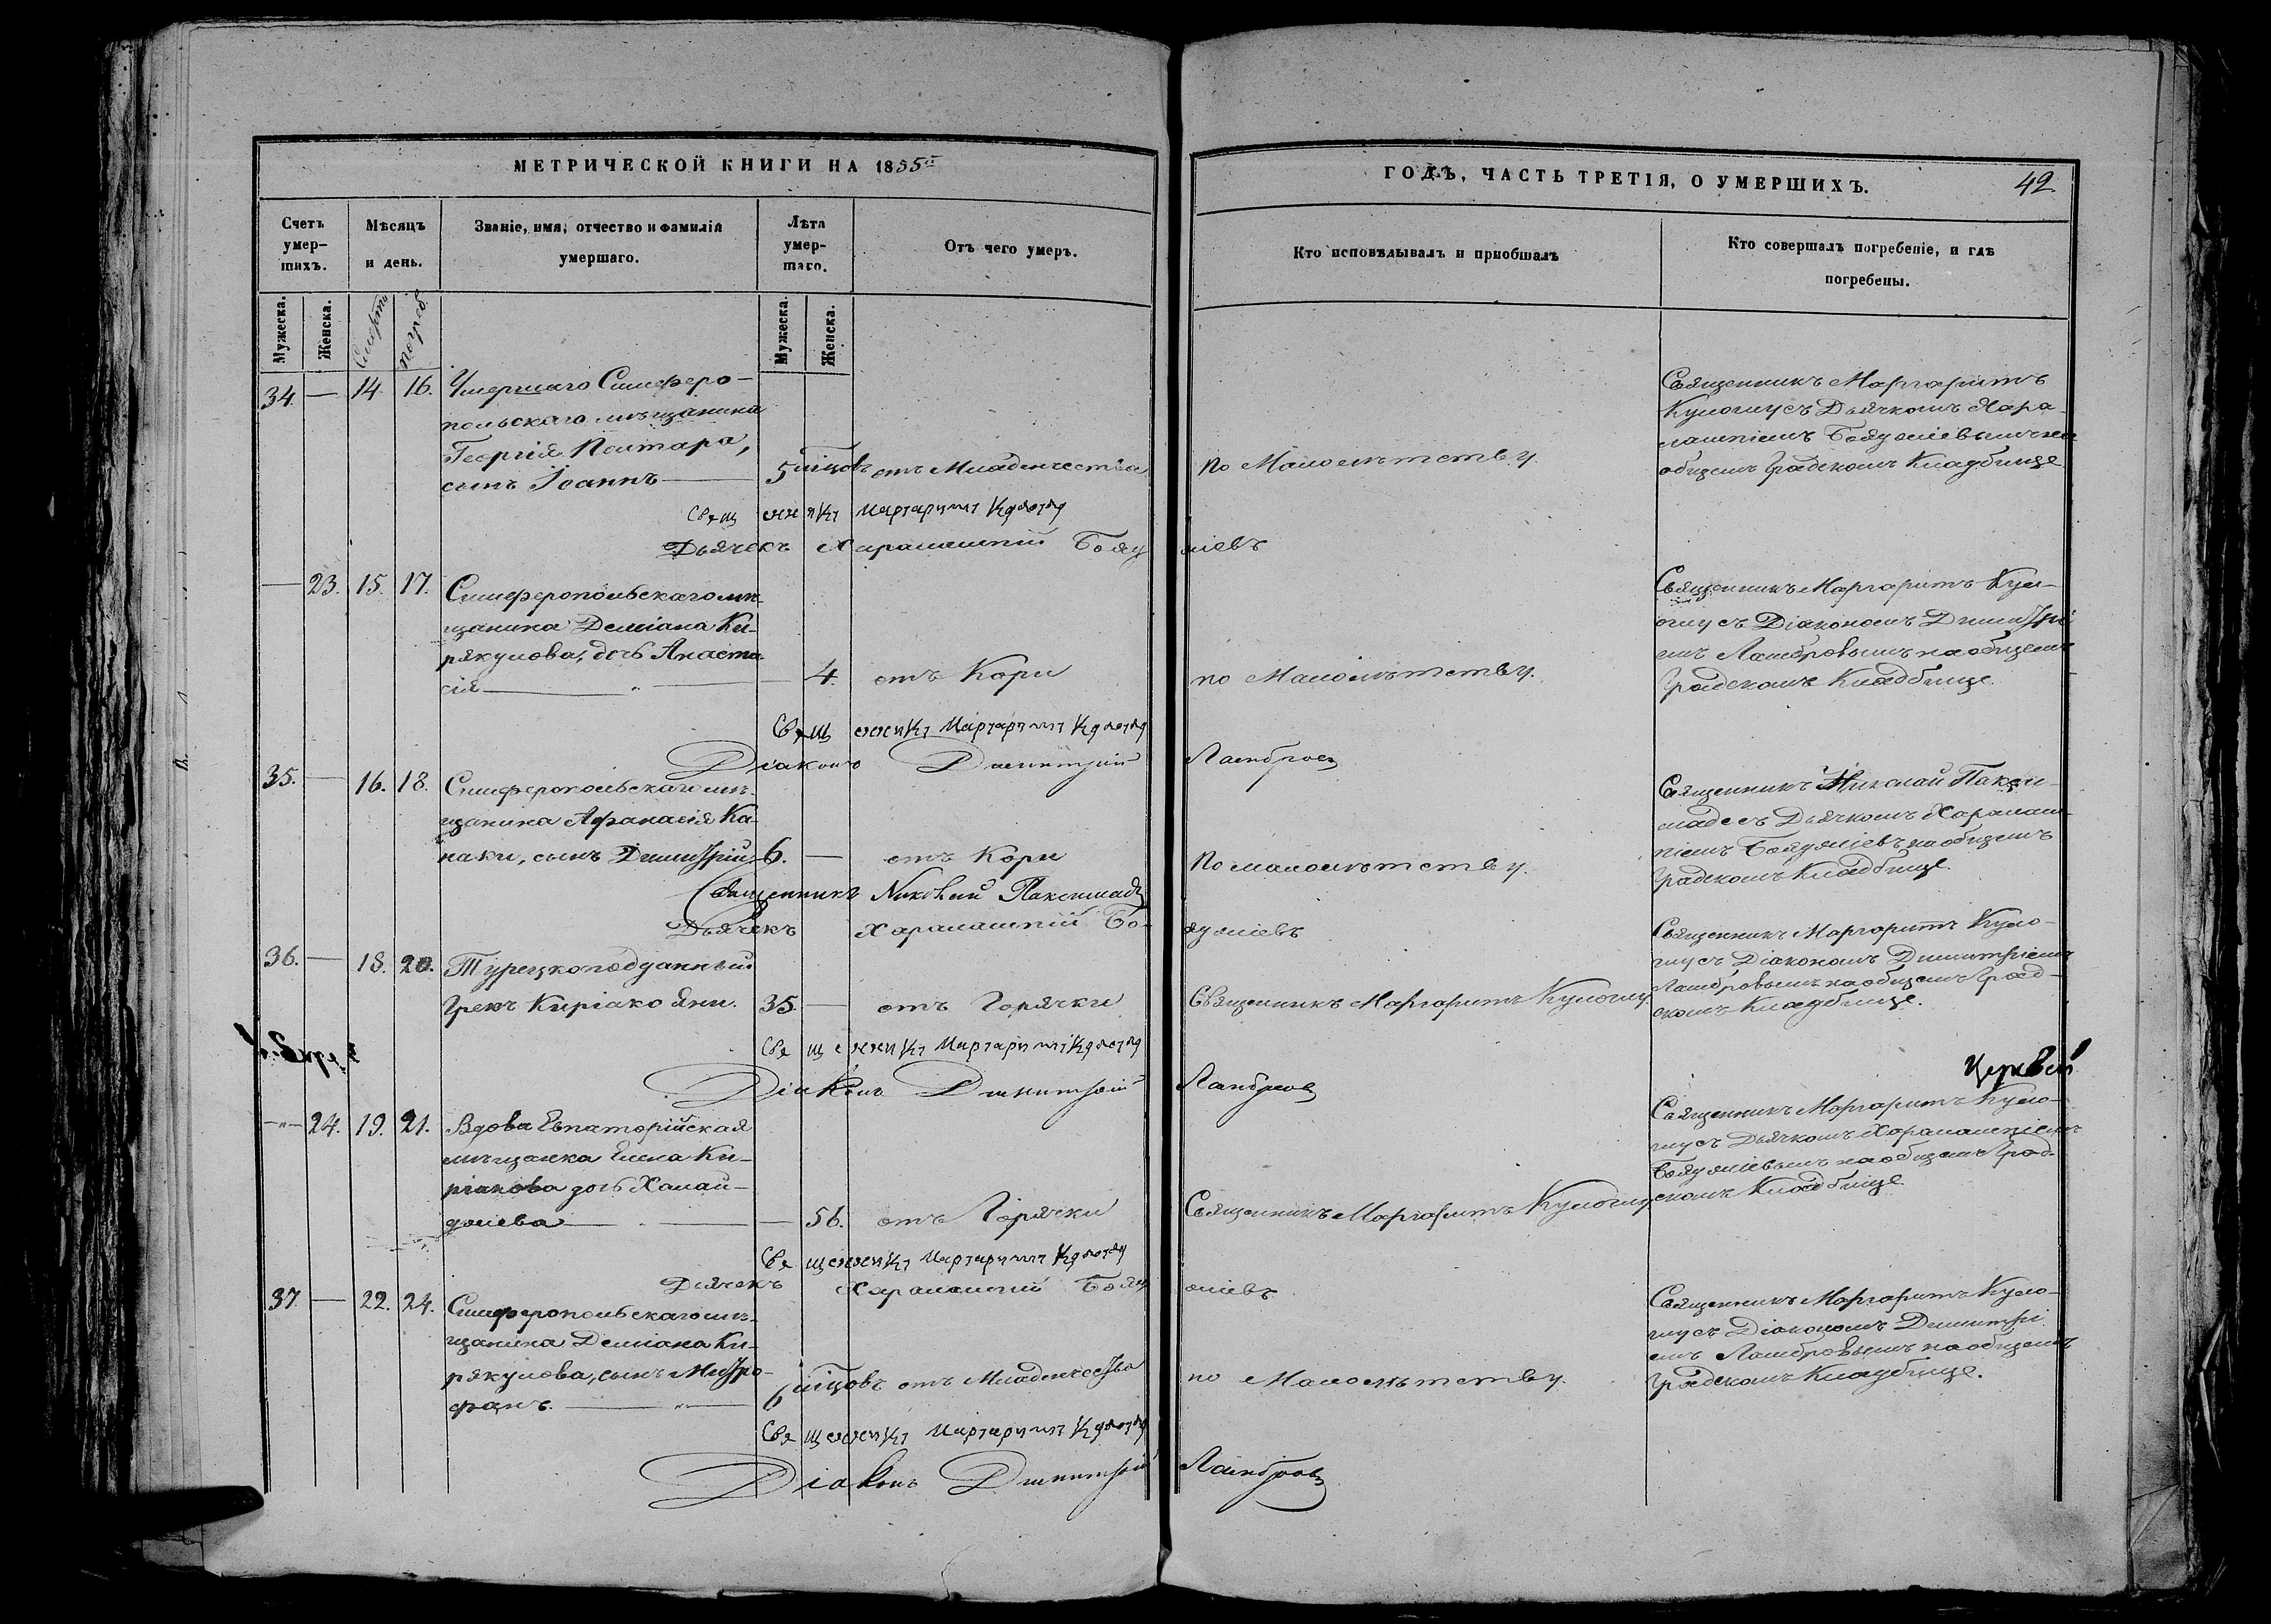 МЕТРИЧЕСКОЙ КНИГИ НА 1855й
ГОДЪ, ЧАСТЬ ТРЕТІЯ, О УМЕРШИХЪ.
42.
Счетъ умер-
шихъ.
Мѣсяцъ
и день.
Званіе, имя, отчество и фамилія
умершаго.
Лѣта
умер-
шаго.
Отъ чего умеръ.
Кто исповѣдывалъ и пріобщалъ
Кто совершалъ погребеніе, и гдѣ
погребены.
Мужеска.
Женска.
Смерти
погреб.
Мужеска.
Женска.
34. — 14. 16. Умершаго Симферо-
польскаго мѣщанина
Георгія Полтара,
сынъ Іоаннъ — 5 мѣсцовъ отъ Младенчества
по Малолѣтству.
Священникъ Маргаритъ
съ Дьячкомъ Хара-
лампіемъ на
общемъ Градскомъ Кладбище
Священникъ Маргаритъ
Дьячекъ Харалампій
— 23. 15. 17. Симферопольскаго мѣ-
щанина Деміана Ки-
рякулова, дочь Анаста-
сія — 4. отъ Кори
по Малолѣтству.
Священникъ Маргаритъ
съ Діакономъ Димитрі-
емъ Ламбровымъ на общемъ
Градскомъ Кладбище.
Священникъ Маргаритъ
Діаконъ Димитрій Ламбровъ
35. — 16. 18. Симферопольскаго мѣ-
щанина Афанасія Ка-
наки, сынъ Димитрій 6. — отъ Кори
По малолѣтству.
Священникъ Николай
съ Дьячкомъ Харалам-
піемъ на общемъ
Градскомъ Кладбище.
Священникъ Николай
Дьячекъ Харалампій
36. — 18. 20. Турецкоподданный
Грекъ Киріако Яни. 35. — отъ Горячки
Священникъ Маргаритъ
Священникъ Маргаритъ
съ Діакономъ Димитріемъ
Ламбровымъ на общемъ Град-
скомъ Кладбище.
Священникъ Маргаритъ
Діаконъ Димитрій Ламбровъ
Церквей
—"— 24. 19. 21. Вдова Евпаторійская
мѣщанка Елена Ки-
ріакова дочь
— 56. отъ Горячки
Священникъ Маргаритъ
Священникъ Маргаритъ
съ Дьячкомъ Харалампіемъ
на общемъ Град-
скомъ Кладбище
Священникъ Маргаритъ
Дьячекъ Харалампій
37. — 22. 24. Симферопольскаго мѣ-
щанина Деміана Ки-
рякулова, сынъ Митро-
фанъ. — " — 6 мѣсцовъ отъ Младенчества
по Малолѣтству.
Священникъ Маргаритъ
съ Діакономъ Димитрі-
емъ Ламбровымъ на общемъ
Градскомъ Кладбище.
Священникъ Маргаритъ
Діаконъ Димитрій Ламбровъ